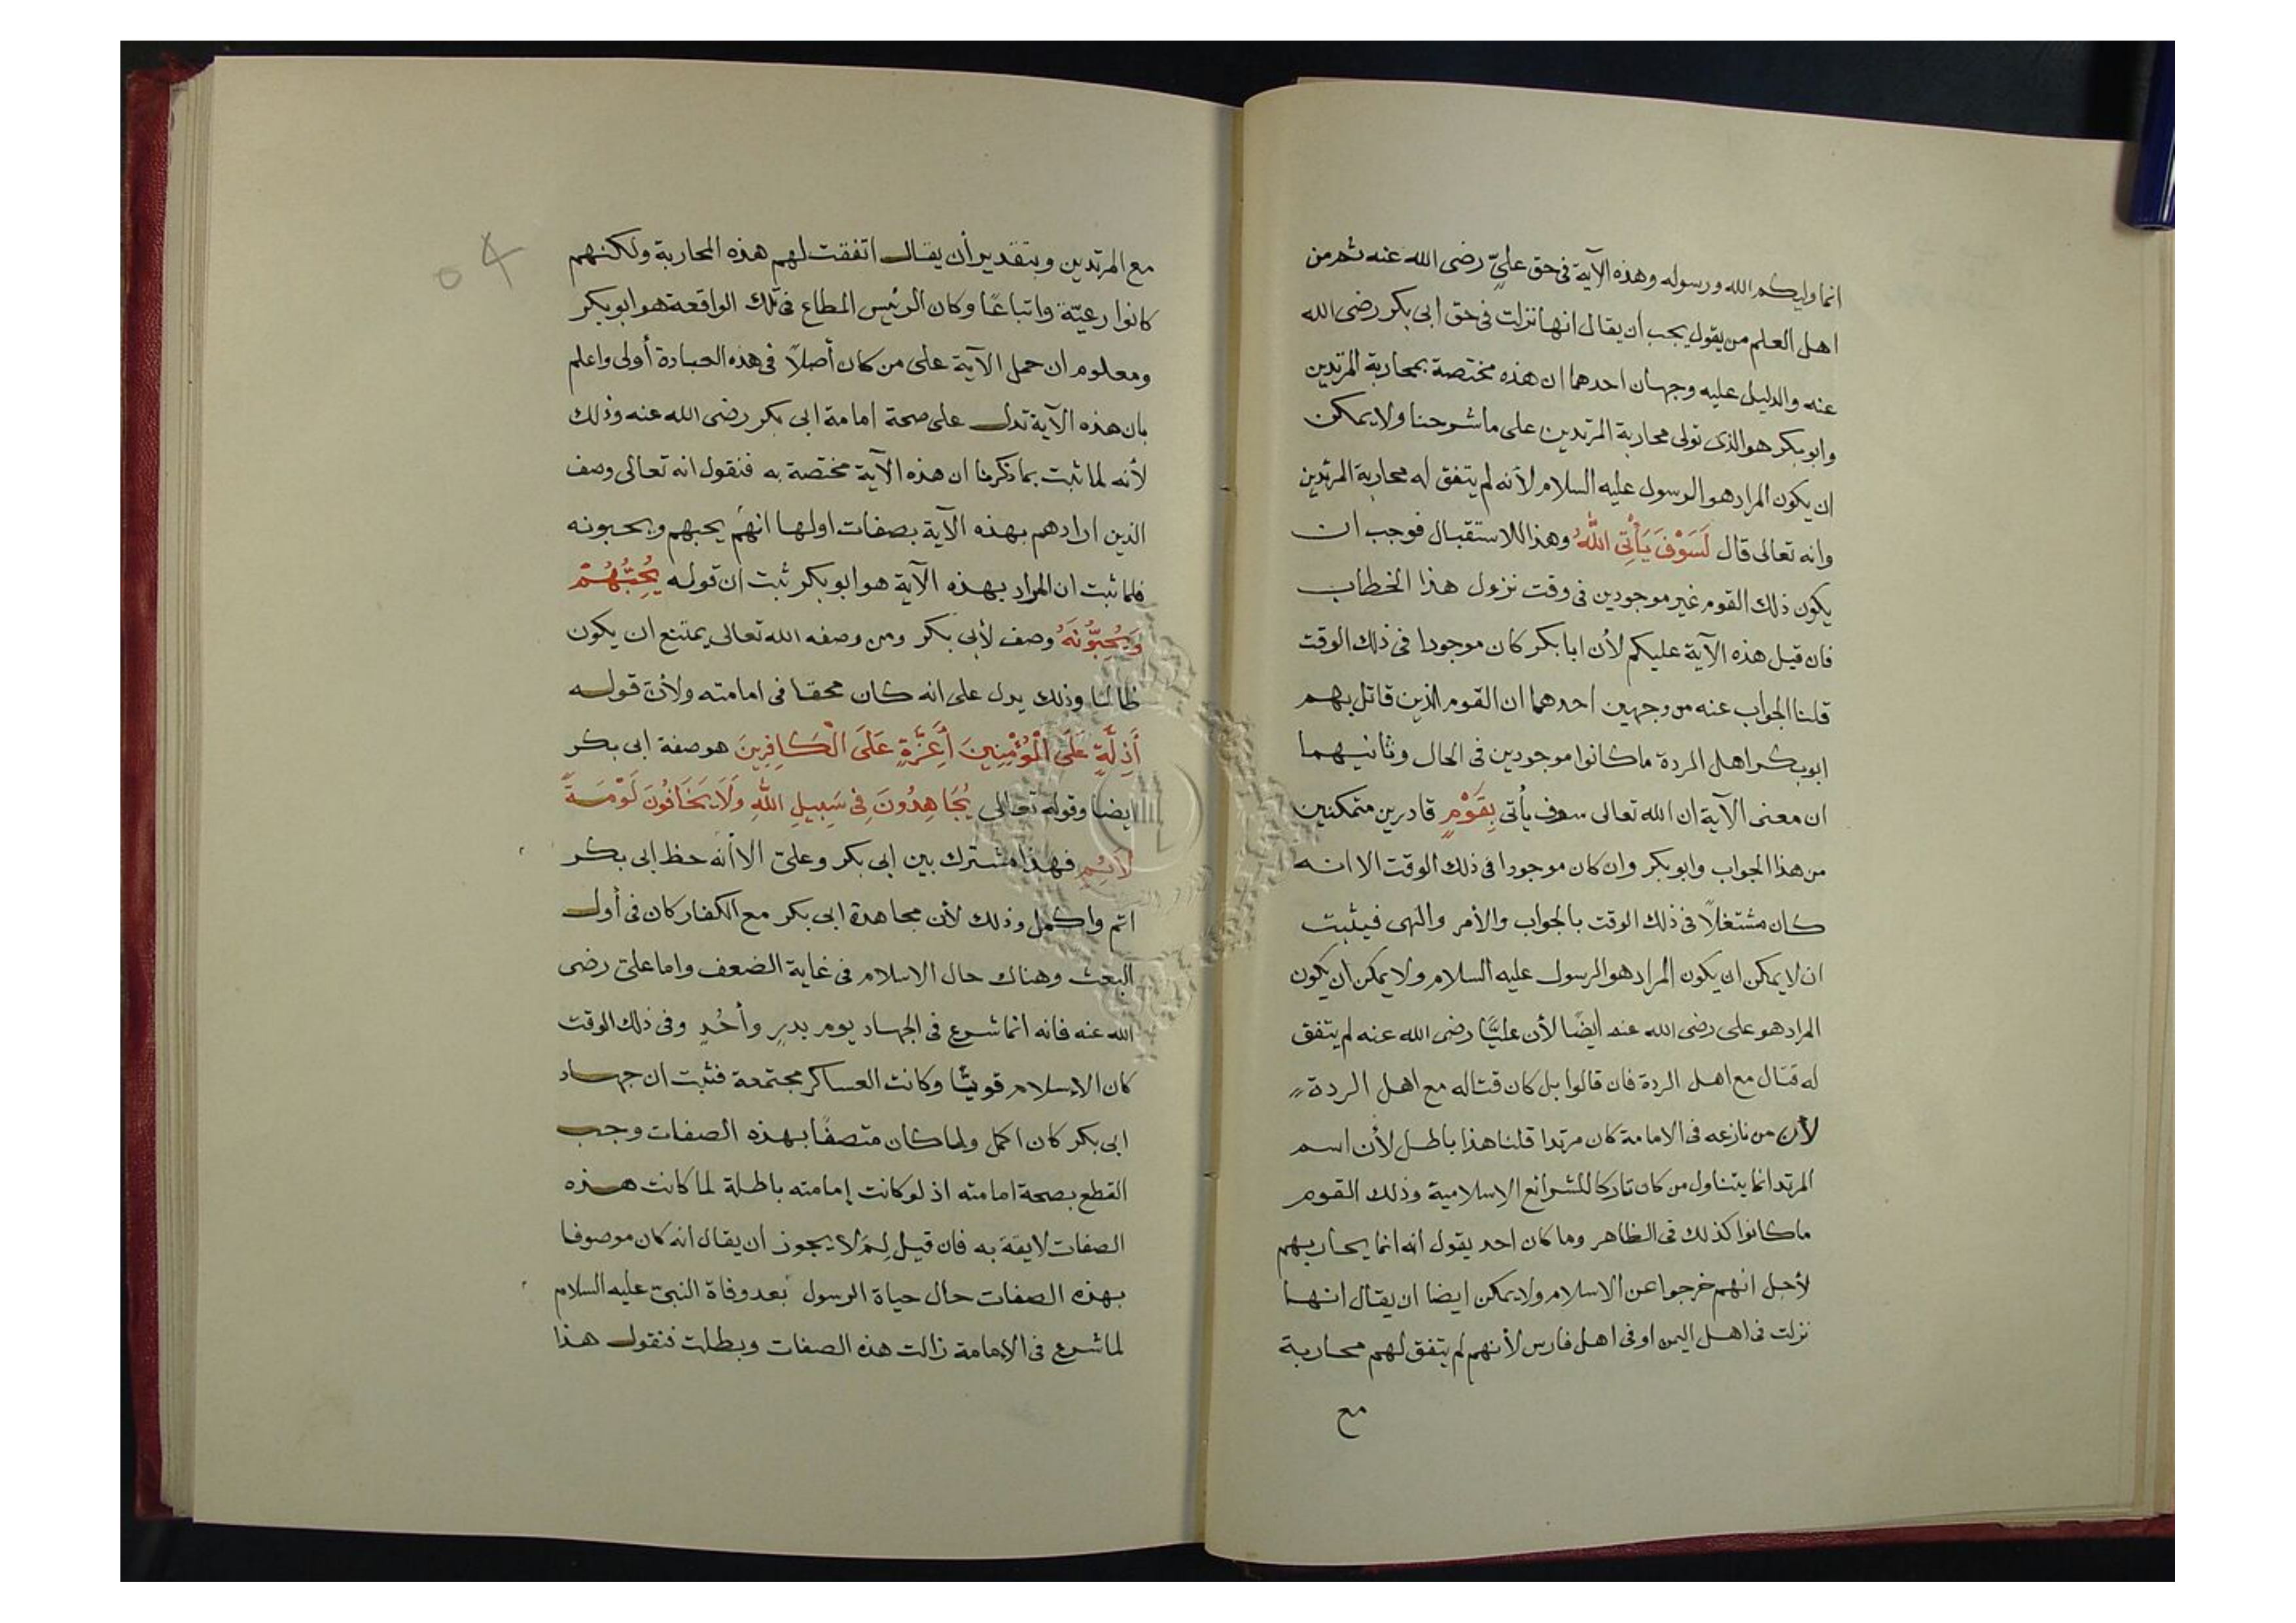 انما وليكم الله ورسوله وهذه الآية فى حق علىّ رضى الله عنه ثم من
اهل العلم من يقول يجب ان يقال انها نزلت فى حق ابى بكر رضى الله
عنه والدليل عليه وجهان احدهما ان هذه مختصة بمحاربة المرتدين
وابو بكر هو الذى تولى محاربة المرتدين على ما شرحنا ولا يمكن
ان يكون المراد هو الرسول عليه السلام لأنه لم يتفق له محاربة المرتدين
وانه تعالى قال لَسَوْفَ يَأْتِى اللّٰهُ وهذا للاستقبال فوجب ان
يكون ذلك القوم غير موجودين فى وقت نزول هذا الخطاب
فان قيل هذه الآية عليكم لأن ابا بكر كان موجودا فى ذلك الوقت
قلنا الجواب عنه من وجهين احدهما ان القوم الذين قاتل بهم
ابو بكر اهل الردة ما كانوا موجودين فى الحال وثانيهما
ان معنى الآية ان الله تعالى سوف يأتى بِقَوْمٍ قادرين متمكنين
من هذا الجواب وابو بكر وان كان موجودا فى ذلك الوقت الا انه
كان مشتغلاً فى ذلك الوقت بالجواب والأمر والنهى فيثبت
ان لا يمكن ان يكون المراد هو الرسول عليه السلام ولا يمكن ان يكون
المراد هو على رضى الله عنه ايضًا لأن عليًّا رضى الله عنه لم يتفق
له قتال مع اهل الردة فان قالوا بل كان قتاله مع اهل الردة
لأن من نازعه فى الامامة كان مرتدا قلنا هذا باطل لأن اسم
المرتد انما يتناول من كان تاركا للشرائع الاسلامية وذلك القوم
ما كانوا كذلك فى الظاهر وما كان احد يقول انه انما يحاربهم
لأجل انهم خرجوا عن الاسلام ولا يمكن ايضا ان يقال انها
نزلت فى اهل اليمن او فى اهل فارس لأنهم لم يتفق لهم محاربة
مع
٥٤
مع المرتدين وبتقدير أن يقال اتفقت لهم هذه المحاربة ولكنهم
كانوا رعيّة واتباعًا وكان الرئيس المطاع فى تلك الواقعة هو ابو بكر
ومعلوم ان حمل الآية على من كان أصلاً فى هذه العبادة أولى واعلم
بان هذه الآية تدل على صحة امامة ابى بكر رضى الله عنه وذلك
لأنه لما ثبت بما ذكرنا ان هذه الآية مختصة به فنقول انه تعالى وصف
الذين ارادهم بهذه الآية بصفات اولها انهم يحبهم ويحبونه
فلما ثبت ان المراد بهذه الآية هو ابو بكر ثبت ان قوله يُحِبُّهُمْ
وَيُحِبُّونَهُ وصف لأبى بكر ومن وصفه الله تعالى يمتنع ان يكون
ظالما وذلك يدل على انه كان محقا فى امامته ولأن قوله
أَذِلَّةٍ عَلَى الْمُؤْمِنِينَ أَعِزَّةٍ عَلَى الْكَافِرِينَ هو صفة ابى بكر
ايضا وقوله تعالى يُجَاهِدُونَ فِى سَبِيلِ اللّٰهِ وَلَا يَخَافُونَ لَوْمَةَ
لَائِمٍ فهذا مشترك بين ابى بكر وعلىّ الا أنه حظ ابى بكر
اتم واكمل وذلك لأن مجاهدة ابى بكر مع الكفار كان فى أول
البعث وهناك حال الاسلام فى غاية الضعف واما علىّ رضى
الله عنه فانه انما شرع فى الجهاد يوم بدرٍ وأحُدٍ وفى ذلك الوقت
كان الإسلام قويًّا وكانت العساكر مجتمعة فثبت ان جهاد
ابى بكر كان اكمل ولما كان متصفًا بهذه الصفات وجب
القطع بصحة امامته اذ لو كانت إمامته باطلة لما كانت هذه
الصفات لايقة به فان قيل لِمَ لا يجوز ان يقال انه كان موصوفا
بهذه الصفات حال حياة الرسول بعد وفاة النبىّ عليه السلام
لما شرع فى الإمامة زالت هذه الصفات وبطلت فنقول هذا